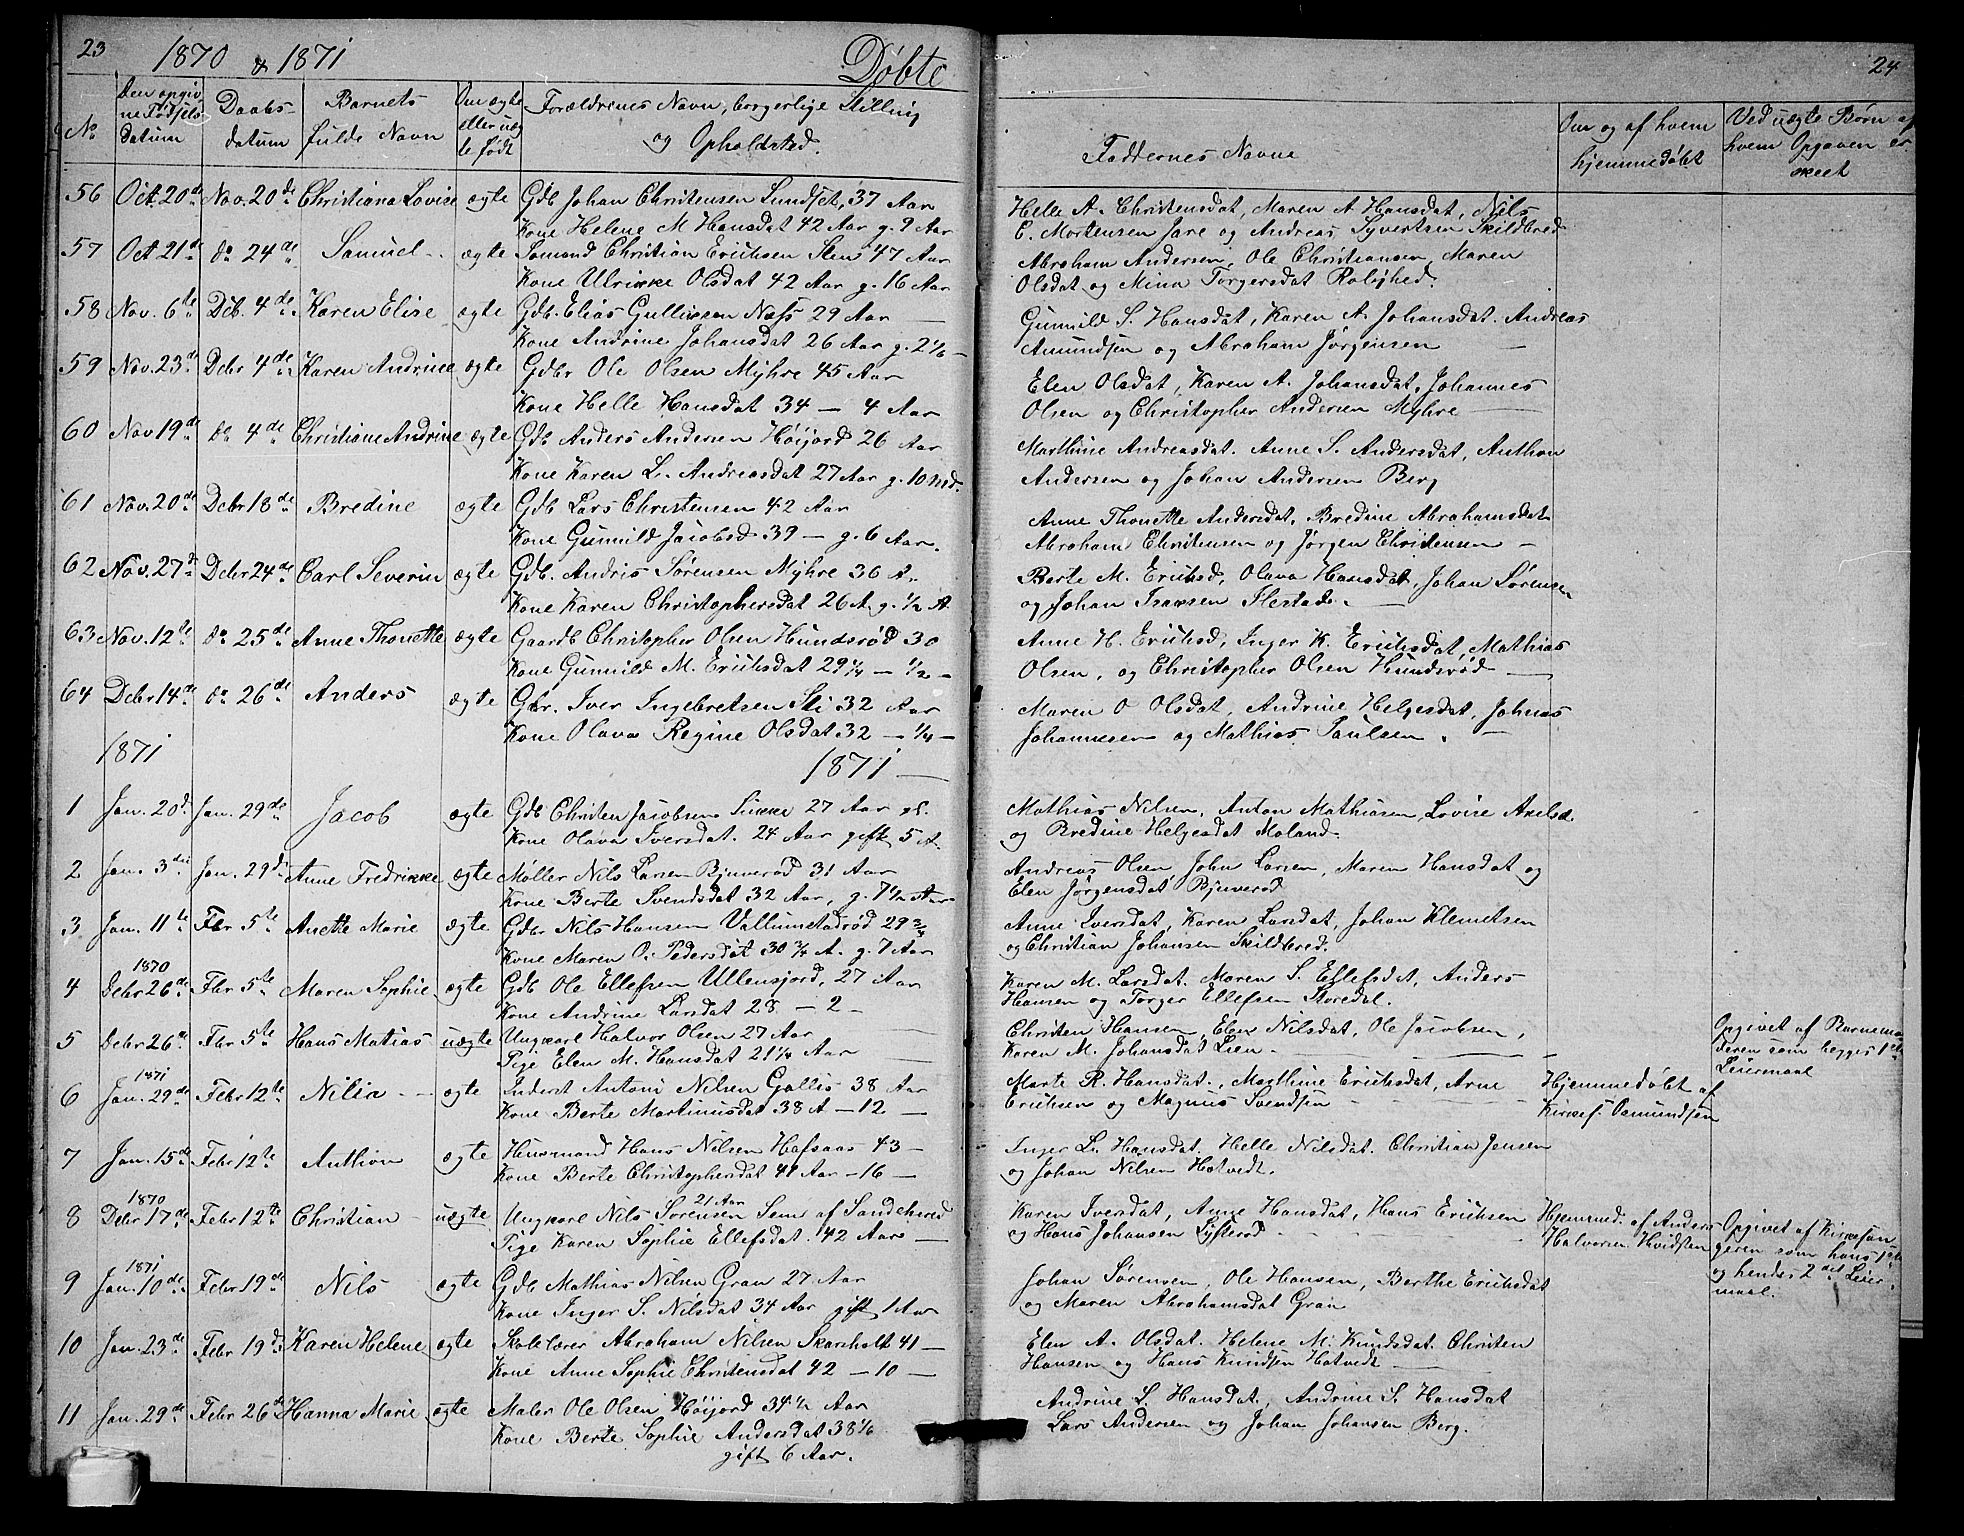 23
1870 & 1871
Døbte
24
No
Den opgivne Fødselsdatum
Daabsdatum
Barnets fulde Navn
Om ægte eller uægte født
Forældrenes Navn, borgerlige Stilling og Opholdsted.
Faddernes Navne
Om og af hvem hjemmedøbt
Ved uægte Børn af hvem Opgaven er skeet
56 Oct. 20de Nov. 20de Christiana Lovise ægte Gdb Johan Christensen Lundset, 37 Aar
Kone Helene M Hansdat 42 Aar g. 9 Aar
Helle A. Christensdat, Maren A Hansdat, Nils
C. Mortensen Jare og Andreas Syvertsen Skildbred
57 Oct 21de do 24de Samuel ægte Sømand Christian Erichsen Sten 47 Aar
Kone Ulrikke Olsdat 42 Aar g. 16 Aar
Abraham Andersen, Ole Christiansen, Maren
Olsdat og Mina Torgersdat Roløkhed.
58 Nov. 6te Deb. 4de Karen Elise ægte Gdb. Elias Gullixsen Næss 29 Aar
Kone Andrine Johansdat 26 Aar g. 2 1/6
Gunnild S. Hansdat, Karen A. Johansdat. Andreas
Amundsen og Abraham Jørgensen
59 Nov. 23de Debr 4de Karen Andrine ægte Gdbr Ole Olsen Myhre 45 Aar
Kone Helle Hansdat 34 — 4 Aar
Elen Olsdat, Karen A. Johansdat, Johannes
Olsen og Christopher Andersen Myhre
60 Nov 19de do 4de Christiane Andrine ægte Gdb Anders Andersen Høijord 26 Aar
Kone Karen L. Andreasdat 27 Aar g. 10 Md.
Marthine Andreasdat. Anne S. Andersdat, Anthon
Andersen og Johan Andersen Berg
61 Nov. 20de Debr 18de Bredine ægte Gdb Lars Christensen 42 Aar
Kone Gunnild Jacobsd 39 — g. 6 Aar.
Anne Thonette Andersdat, Bredine Abrahamsdat
Abraham Christensen og Jørgen Christensen —
62 Nov. 27de Debr 24de Carl Severin ægte Gdb. Andris Sørensen Myhre 36 A.
Kone Karen Christophersdat 26 A. g. 1/2 A.
Berte M. Erichsd, Olava Hansdat, Johan Sørensen
og Johan Isaksen Flestad.
63 Nov. 12te do 25de Anne Thonette ægte Gaardb Christopher Olsen Hundsrød 30
Kone Gunnild M. Erichsdat 29 1/4 — 1/2 —
Anne H. Erichsd, Inger K. Erichsdat, Mathias
Olsen, og Christopher Olsen Hundsrød
64 Debr 14de do 26de Anders ægte Gbr. Iver Ingebretsen Sti 32 Aar
Kone Olava Regine Olsdat 32 — 1/4 —
Maren O Olsdat, Andrine Helgesdat, Johnas
Johannesen og Mathias Paulsen.
1871
1871
1 Jan. 20de Jan. 29de Jacob ægte Gdb Christen Jacobsen Linke 27 Aar gl.
Kone Olava Iversdat. 24 Aar gift 5 A.
Mathias Nilsen, Anton Mathiasen, Lovise Axelsd.
og Bredine Helgesdat Moland.
2 Jan. 3die Jan. 29de Anne Fredrikke ægte Møller Nils Larsen Bjuverød 31 Aar
Kone Berte Svendsdat 32 Aar, g. 7 1/2 Aar
Andreas Olsen John Larsen, Maren Hansdat og
Elen Jørgensdat Bjuverød
3 Jan. 11te Febr 5te Anette Marie ægte Gdbr Nils Hansen Vallumstadrød 29 3/4
Kone Maren O. Pedersdat 30 3/4 A. g. 7 Aar
Anne Iversdat, Karen Larsdat, Johan Klemetsen
og Christian Johansen Skildbred.
4 1870 Debr 26de Fbr 5te Maren Sophie ægte Gdb Ole Ellefsen Ullensjord, 27 Aar
Kone Andrine Larsdat 28 — 2 —
Karen M. Larsdat. Maren S. Ellefsdat, Anders
Hansen og Torger Ellefsen Storedal.
5 Debr 26de Fbr 5te Hans Matias uægte Ungkarl Halvor Olsen 27 Aar
Pige Elen M. Hansdat 21 1/4 Aar
Christen Hansen, Elen Nilsdat, Ole Jacobsen,
Karen M. Johansdat Lien
Opgivet af Barnemoderen som begges 1ste Leiermaal
6 1871 Jan. 29de Febr 12te Nilia ægte Inderst Antoni Nilsen Gallis 38 Aar
Kone Berte Martinusdat 38 A — 12 —
Marte R. Hansdat., Marthine Erichsdat, Arne
Erichsen og Magnus Svendsen
Hjemmedøbt af Kirkes. Osmundsen
7 Jan. 15de Febr 12te Anthon ægte Huusmand Hans Nilsen Hafsaas 43 —
Kone Berte Christophersdat 41 Aar — 16 —
Inger L. Hansdat. Helle Nilsdat. Christian Jensen
og Johan Nilsen Hotvedt.
8 1870 Debr 17de Febr 12te Christian uægte Ungkarl Nils Sørensen 21 Aar Sem af Sandeherred
Pige Karen Sophie Ellefsdat. 42 Aar
Karen Iversdat, Anne Hansdat, Hans Erichsen
og Hans Johansen Lysterød
Hjemmed. af Anders Halvorsen Hvidsten
Opgivet af Kirkesangeren som hans 1ste og hendes 2det Leiermaal.
9 1871 Jan. 10de Febr 19de Nils ægte Gdb Mathias Nilsen Gran 27 Aar
Kone Inger S. Nilsdat 34 Aar gift 1 Aar
Johan Sørensen, Ole Hansen, Berthe Erichsdat
og Maren Abrahamsdat Gran
10 Jan. 23de Febr 19de Karen Helene ægte Skolelærer Abraham Nilsen Skarsholt 41 —
Kone Anne Sophie Christensdat 42 — 10 —
Elen A. Olsdat. Helene M. Knudsdat. Christen
Hansen og Hans Knudsen Hotvedt
11 Jan. 29de Febr 26de Hanna Marie ægte Maler Ole Olsen Høijord 34 1/2 Aar
Kone Berte Sophie Andersdat 38 1/6
gift 6 Aar.
Andrine L. Hansdat, Andrine S. Hansdat
Lars Andersen og Johan Johansen Berg.